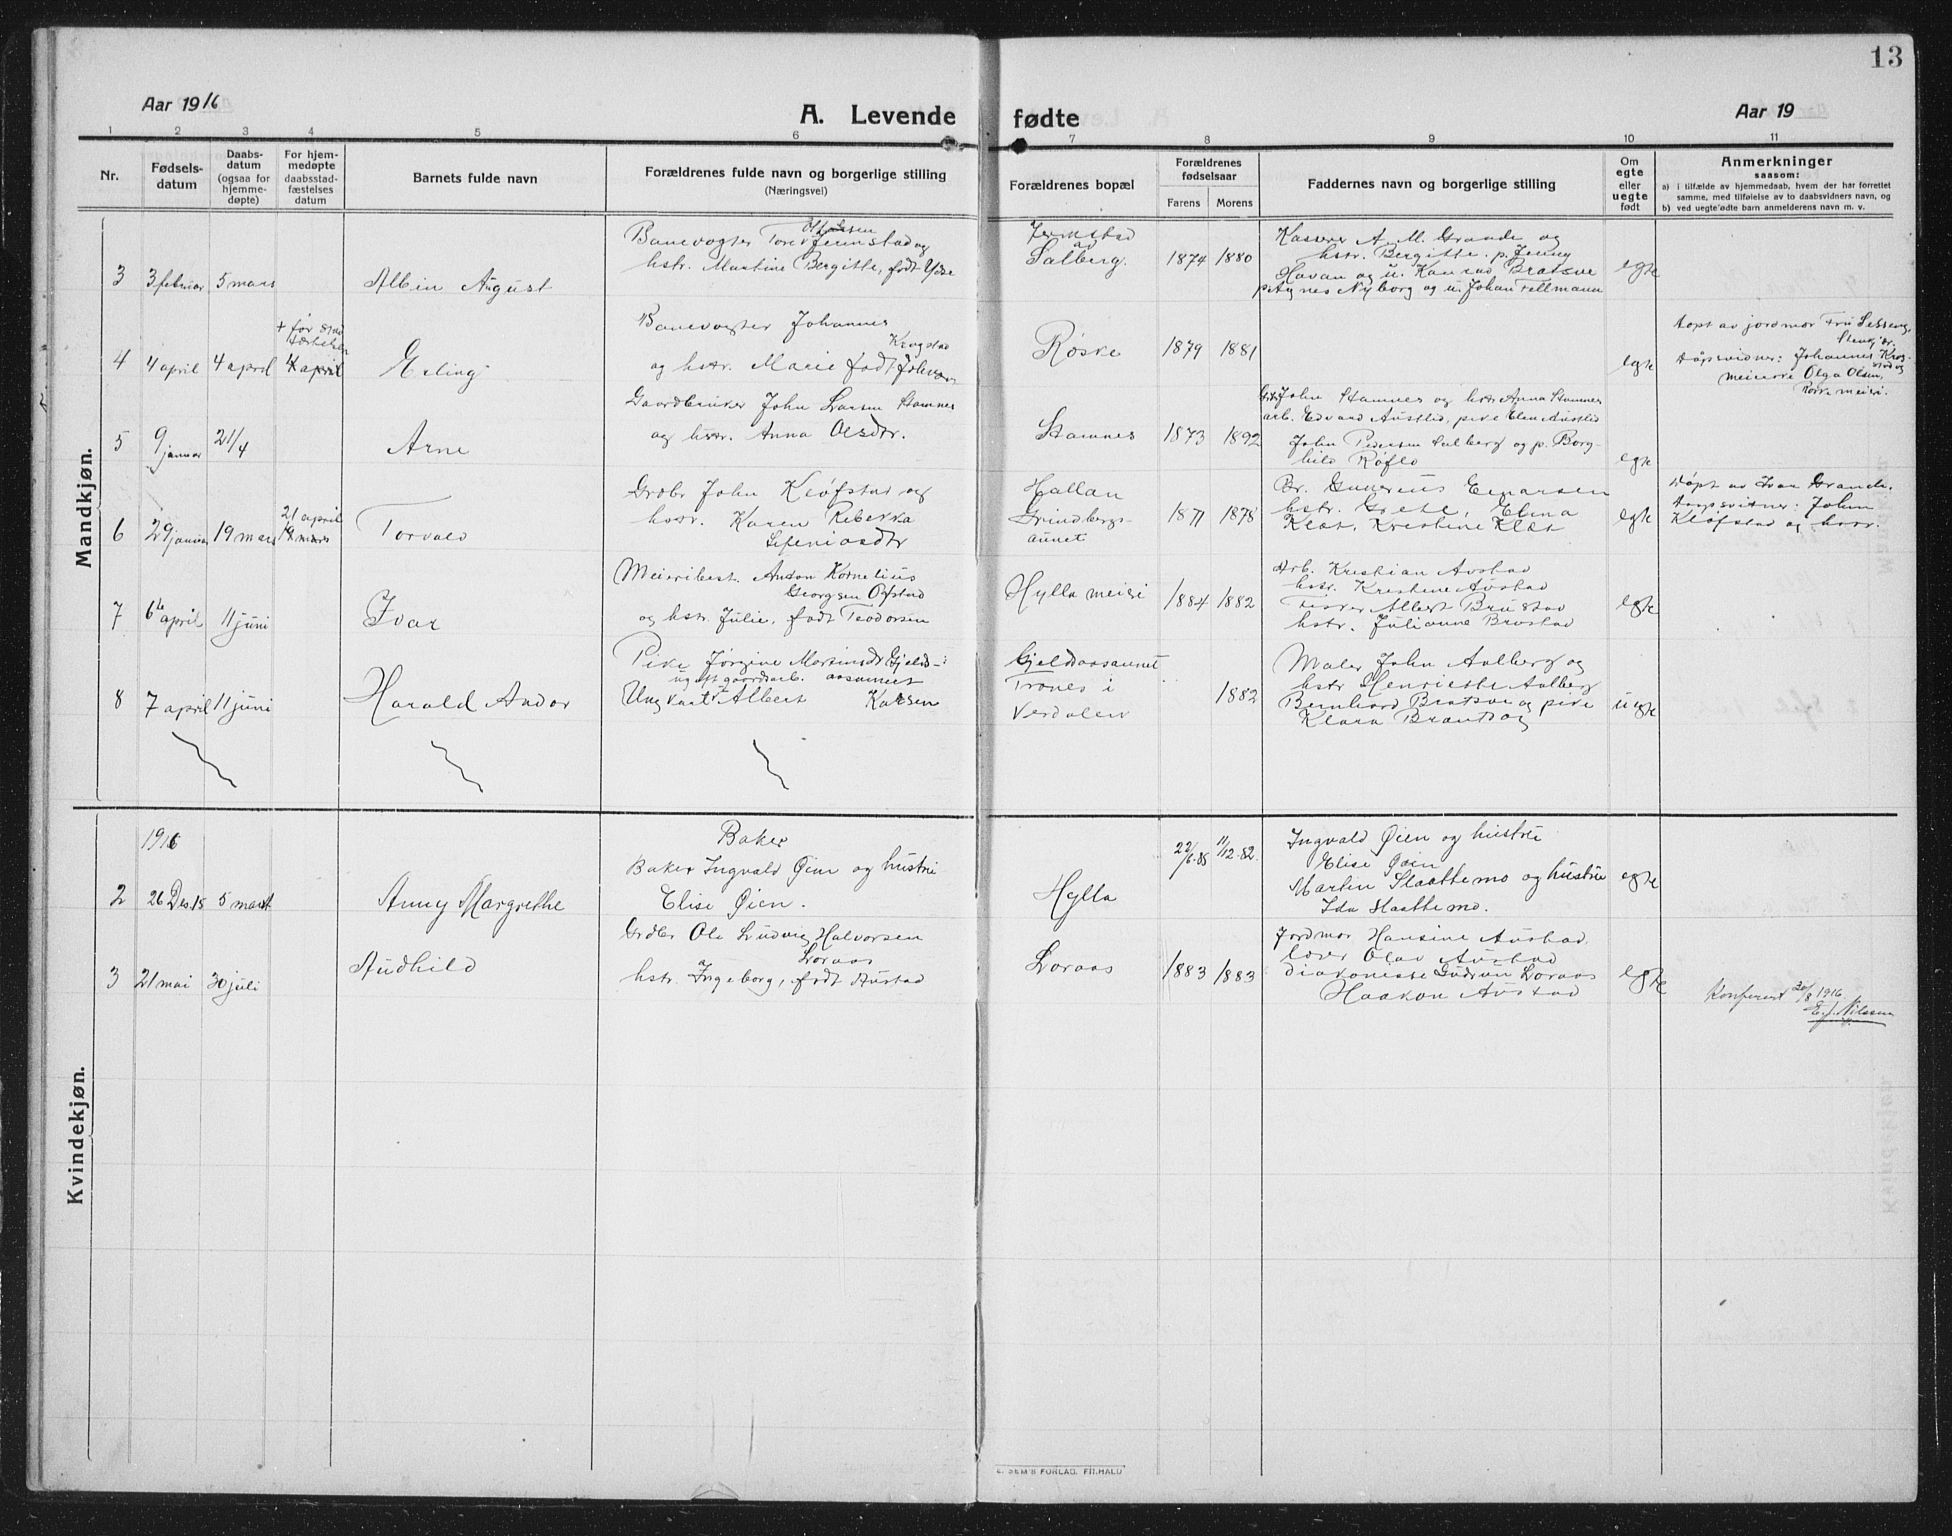 13
Aar 1916
A. Levende fødte
Aar 19
1 2 3 4 5 6 7 8 9 10 11
Nr.
Fødsels-
datum
Daabs-
datum
(ogsaa for
hjemme-
døpte)
For hjem-
medøpte
daabsstad-
fæstelses
datum
Barnets fulde navn
Forældrenes fulde navn og borgerlige stilling
(Næringsvei)
Forældrenes bopæl
Forældrenes
fødselsaar
Farens Morens
Faddernes navn og borgerlige stilling
Om
egte
eller
uegte
født
Anmerkninger
saasom:
a) i tilfælde av hjemmedaab, hvem der har forrettet
samme, med tilføielse av to daabsvidners navn, og
b) ved uegte fødte barn anmelderens navn m. v.
Mandkjøn.
3
3 februar
5 mars
Albin August
Banevogter Tore Jermstad og
hstr. Martine Bergitte, født Ydse
Jermstad
av
Salberg.
1874 1880
Kasserer A. M. Grande og
hstr. Bergitte. p. Jenny
Havan og u. Konrad Bratsve
p. Agnes Nyborg og u. Johan Fellmann
egte
4
4 april
4 april
4 april
Erling
Banevogter Johannes
Krogstad
og hstr. Marie født Johnsen
Røske
1879 1881
egte
Døpt av jordmor Fru
Daapsvidner: Johannes Krog-
stad og
meierske Olga Olsen,
Røske meieri.
5
9 januar
21/4
Arne
Gaardbruker John Larsen Stamnes
og hstr. Anna Olsdtr.
Stamnes
1873 1892
John Stamnes og hstr Anna Stamnes
arb. Edvard Austlid, pike Elen Austlid
John Pedersen Salberg og p. Borg-
hild Røflo
egte
6
29 januar
19 mars
21 april
19 mars
Torvald
Grdbr John Kløfstad og
hstr. Karen Rebekka
Hallan
Grindbergs-
aunet
1871 1878
Br. Gunerius Einarsen
hstr. Grete, Elina
Klæt, Kristine Klæt
egte
Døpt av Ivar Grande.
Daapsvitner: John
Kløfstad og hstr.
7
6te april
11 juni
Ivar
Meieribest. Anton Kornelius
Georgsen Ofstad
og hstr. Julie, født Teodorsen
Hylla meieri
1884 1882
Arb. Kristian Austad
hstr. Kristine Austad
Fisker Albert Brustad
hstr. Julianne Brustad
egte
8
7 april
11 juni
Harald Andor
Pike Jørgine Martinsdtr Gjelds-
ugift gaardsarb. aasaunet
Ungkarl Albert Karlsen
Gjeldsaasaunet
Trones i
Verdalen
1882
Maler John Aalberg og
hstr Henriette Aalberg
Bernhard Bratsve og pike
Klara Brandtsøg
uegte
Kvindekjøn.
1916
2
26 Des. 15
5 mars
Anny Margrethe
Baker
Baker Ingvald Øien og hustru
Elise Øien.
Hylla
22/6-85 11/12-82.
Ingvald Øien og hustru
Elise Øien
Martin Slaattemo og hustru
Ida Slaattemo.
egte
3
21 mai
30 juli
Audhild
Grdbr Ole Ludvig Halvorsen
Loraas
hstr. Ingeborg, født Austad
Loraas
1883 1883
Jordmor Hansine Austad,
lærer Olav Austad
diakonisse Gudrun Loraas
Haakon Austad
egte
Konferert 20/8 1916.
E. J. Nilssen
E. SEM'S FORLAG. FR.HALD